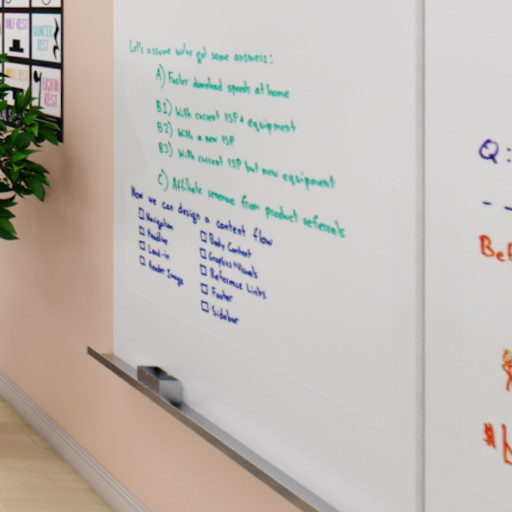 Let's assume we've got some answers:
A) Faster download speeds at home
B1) With current ISP + equipment
B2) With a new ISP
B3) With current ISP but new equipment
C) Affiliate revenue from product referrals
Now we can design a content flow
□ Navigation
□ Headline
□ Lead-in
□ Header Image
□ Body Content
□ Graphics+Visuals
□ Reference Links
□ Footer
□ Sidebar
Q:
HALF REST
QUARTER REST
EIGHTH REST